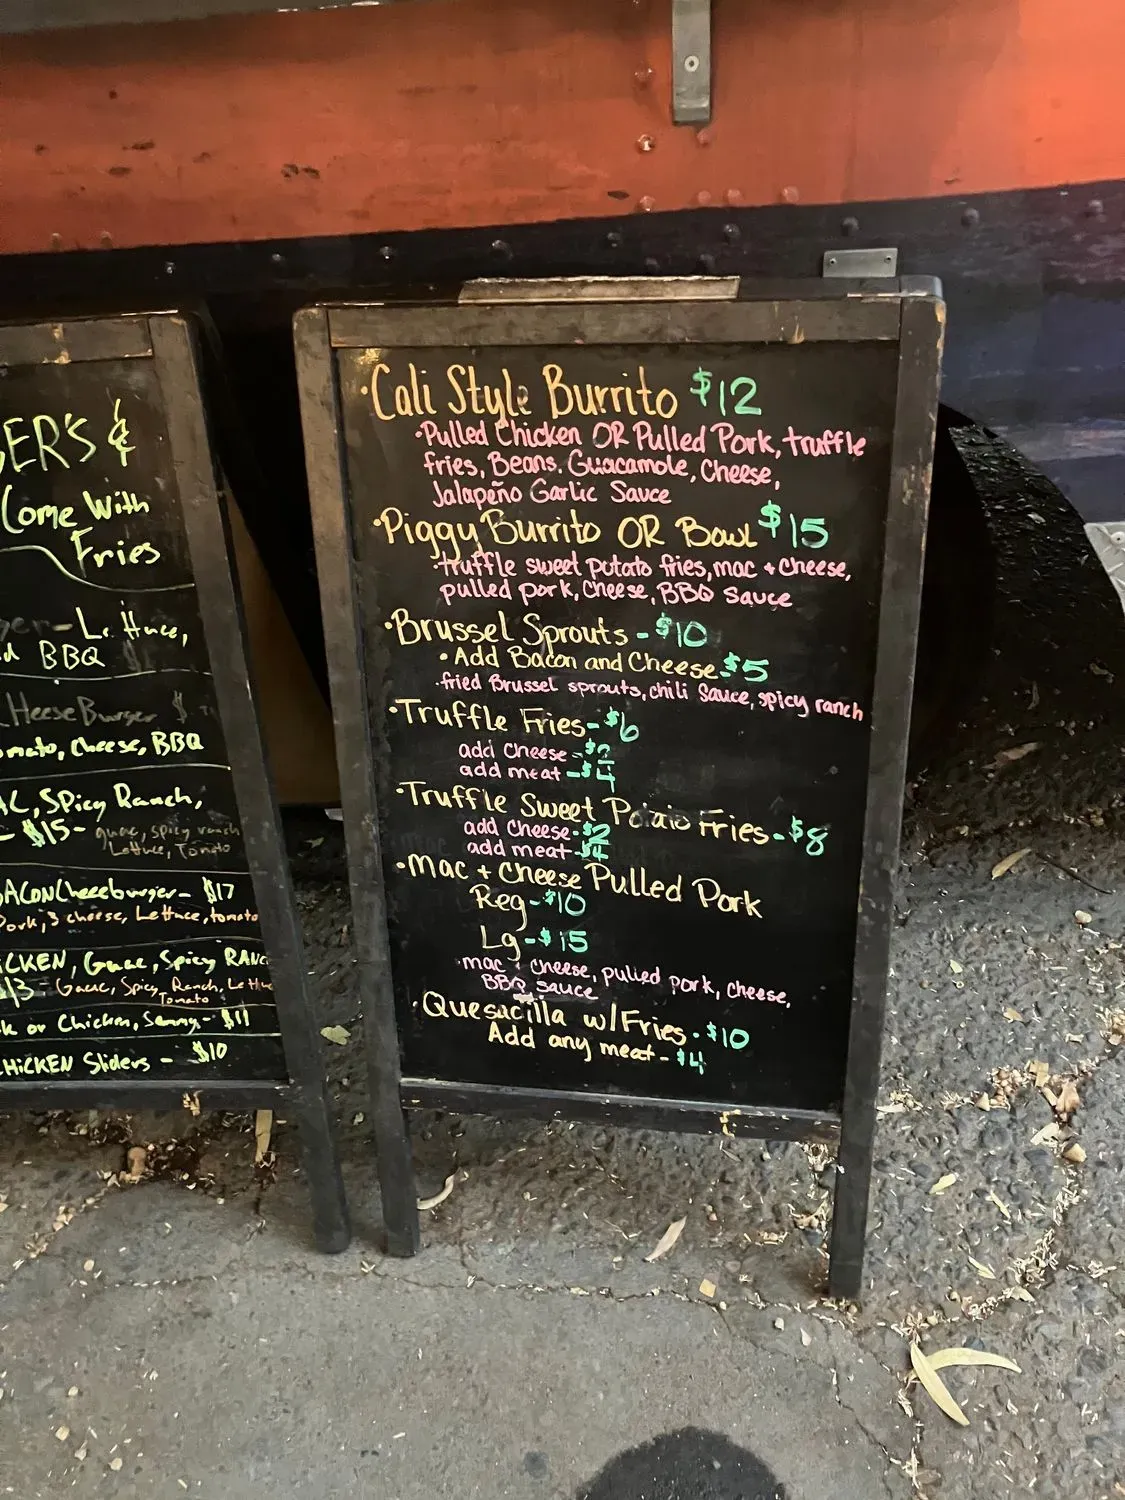 ER'S &
Come With
Fries
Lettuce,
BBQ
HeeseBurger $
omato, Cheese, BBQ
AC, Spicy Ranch,
- $15- guac, spicy ranch
Lettuce, Tomato
BACONCheeseburger- $17
Pork, 3 cheese, Lettuce, tomato
ICKEN, Guac, Spicy RANC
$13- Guac, Spicy Ranch, Lettuc
Tomato
k or Chicken, - $11
CHICKEN Sliders - $10
·Cali Style Burrito $12
·Pulled Chicken OR Pulled Pork, truffle
fries, Beans, Guacamole, Cheese,
Jalapeño Garlic Sauce
·Piggy Burrito OR Bowl $15
·truffle sweet putato fries, mac + cheese,
pulled pork, cheese, BBQ sauce
·Brussel Sprouts - $10
·Add Bacon and Cheese-$5
·fried Brussel sprouts, chili Sauce, spicy ranch
·Truffle Fries-$6
add cheese-$2
add meat-$4
·Truffle Sweet Potato Fries-$8
add cheese-$2
add meat-$4
·Mac + Cheese Pulled Pork
Reg-$10
Lg-$15
·mac + cheese, pulled pork, cheese,
BBQ sauce
·Quesadilla w/Fries-$10
Add any meat-$4